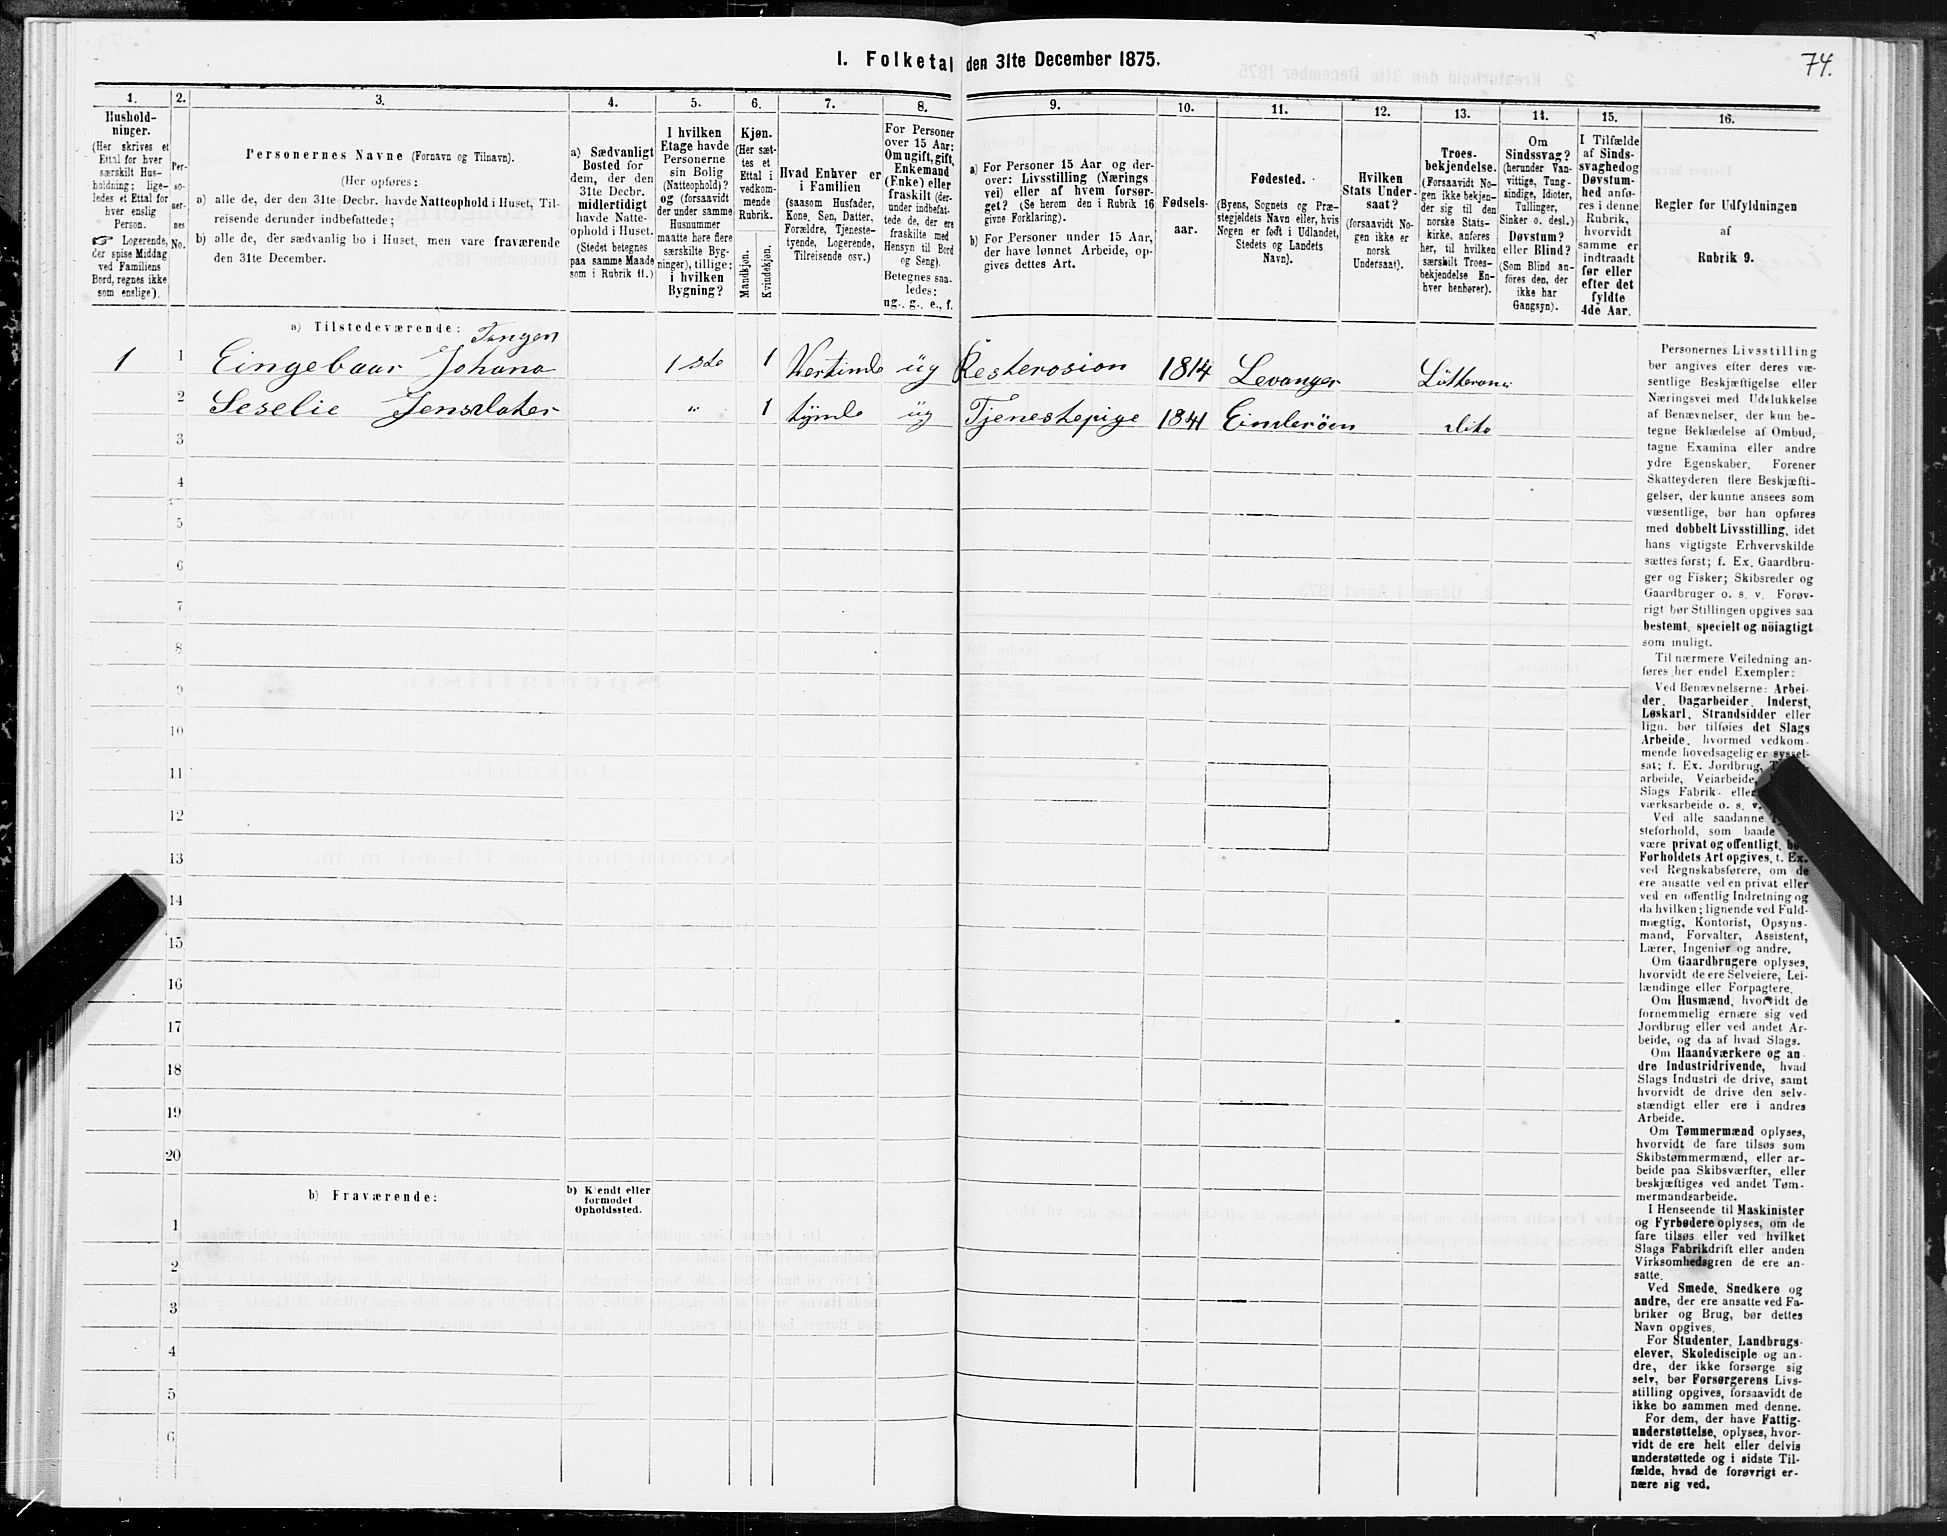 74.
I. Folketal den 31te December 1875.
1. 2. 3. 4. 5. 6. 7. 8. 9. 10. 11. 12. 13. 14. 15. 16.
Hushold-
ninger.
(Her skrives et
Ettal for hver
særskilt Hus-
holdning; lige-
ledes et Ettal for
hver enslig
Person.
☞ Logerende,
der spise Middag
ved Familiens
Bord, regnes ikke
som enslige).
Per-
so-
ner-
nes
No.
Personernes Navne (Fornavn og Tilnavn).
(Her opføres:
a) alle de, der den 31te Decbr. havde Natteophold i Huset, Til-
reisende derunder indbefattede;
b) alle de, der sædvanlig bo i Huset, men vare fraværende
den 31te December.
a) Sædvanligt
Bosted for
dem, der den
31te Decbr.
midlertidigt
havde Natte-
ophold i Huset.
(Stedet betegnes
paa samme Maade
som i Rubrik 11.)
I hvilken
Etage havde
Personerne
sin Bolig
(Natteophold)?
og (forsaavidt
der under samme
Husnummer
maatte høre flere
særskilte Byg-
ninger), tillige:
i hvilken
Bygning?
Kjøn.
(Her sæt-
tes et
Ettal i
vedkom-
mende
Rubrik.
Mandkjøn.
Kvindekjøn.
Hvad Enhver er
i Familien
(saasom Husfader,
Kone, Søn, Datter,
Forældre, Tjeneste-
tyende, Logerende,
Tilreisende osv.)
For Personer
over 15 Aar:
Om ugift, gift,
Enkemand
(Enke) eller
fraskilt (der-
under indbefat-
tede de, der ere
fraskilte med
Hensyn til Bord
og Seng).
Betegnes saa-
ledes:
ug., g., e., f.
a) For Personer 15 Aar og der-
over: Livsstilling (Nærings
vei) eller af hvem forsør-
get? (Se herom den i Rubrik 16
givne Forklaring).
b) For Personer under 15 Aar,
der have lønnet Arbeide, op-
gives dettes Art.
Fødsels-
aar.
Fødested.
(Byens, Sognets og Præ-
stegjeldets Navn eller, hvis
Nogen er født i Udlandet,
Stedets og Landets
Navn).
Hvilken
Stats Under-
saat?
(forsaavidt No-
gen ikke er
norsk
Undersaat).
Troes-
bekjendelse.
(Forsaavidt No-
gen ikke bekjen-
der sig til den
norske Stats-
kirke, anføres
her, til hvilken
særskilt Troes-
bekjendelse En-
hver henhører).
Om
Sindssvag?
(herunder Van-
vittige, Tung-
sindige, Idioter,
Tullinger,
Sinker o. desl.)
Døvstum?
eller Blind?
(Som Blind an-
føres den, der
ikke har
Gangsyn).
I Tilfælde
af Sinds-
svaghed og
Døvstum-
hed anfø-
res i denne
Rubrik,
hvorvidt
samme er
indtraadt
før eller
efter det
fyldte
4de Aar.
Regler for Udfyldningen
af
Rubrik 9.
a) Tilstedeværende: Tangen
1 1 Eingebaar Johana 1 ste 1 Vertinde üg Resterosion 1814 Levanger Lütterana
2 Seselie Jensdater " 1 tynde üg Tjenestepige 1841 Einderöen dito
3
4
5
6
7
8
9
10
11
12
13
14
15
16
17
18
19
20
b) Fraværende:
b) Kjendt eller
formodet
Opholdssted.
1
2
3
4
5
6
Personernes Livsstilling
bør angives efter deres væ-
sentlige Beskjæftigelse eller
Næringsvei med Udelukkelse
af Benævnelser, der kun be-
tegne Beklædelse af Ombud,
tagne Examina eller andre
ydre Egenskaber. Forener
Skatteyderen flere Beskjæfti-
gelser, der kunne ansees som
væsentlige, bør han opføres
med dobbelt Livsstilling, idet
hans vigtigste Erhvervskilde
sættes først; f. Ex. Gaardbru-
ger og Fisker; Skibsreder og
Gaardbruger o. s. v. Forøv-
rigt bør Stillingen opgives saa
bestemt, specielt og nöiagtigt
som muligt.
Til nærmere Veiledning an-
føres her endel Exempler:
Ved Benævnelserne: Arbei-
der, Dagarbeider, Inderst,
Løskarl, Strandsidder eller
lign. bør tilføies det Slags
Arbeide, hvormed vedkom-
mende hovedsagelig er syssel-
sat; f. Ex. Jordbrug,
arbeide, Veiarbeide,
Slags Fabrik- eller
værksarbeide o. s. v.
Ved alle saadanne
steforhold, som baade
være privat og offentligt, bør
Forholdets Art opgives, t. Ex.
ved Regnskabsførere, om de
ere ansatte ved en privat eller
ved en offentlig Indretning og
da hvilken; lignende ved Fuld-
mægtig, Kontorist, Opsyns-
mand, Forvalter, Assistent,
Lærer, Ingeniør og andre.
Om Gaardbrugere oplyses,
hvorvidt de ere Selveiere, Lei-
lændinge eller Forpagtere.
Om Husmænd, hvorvidt de
fornemmelig ernære sig ved
Jordbrug eller ved andet Ar-
beide, og da af hvad Slags.
Om Haandværkere og an-
dre Industridrivende, hvad
Slags Industri de drive, samt
hvorvidt de drive den selv-
stændigt eller ere i andres
Arbeide.
Om Tømmermænd oplyses,
hvorvidt de fare tilsøs som
Skibstømmermænd, eller ar-
beide paa Skibsværfter, eller
beskjæftiges ved andet Tøm-
mermandsarbeide.
I Henseende til Maskinister
og Fyrbødere oplyses, om de
fare tilsøs eller ved hvilket
Slags Fabrikdrift eller anden
Virksomhedsgren de ere an-
satte.
Ved Smede, Snedkere og
andre, der ere ansatte ved Fa-
briker og Brug, bør dettes
Navn opgives.
For Studenter, Landbrugs-
elever, Skoledisciple og an-
dre, der ikke forsørge sig
selv, bør Forsørgerens Livs-
stilling opgives, forsaavidt de
ikke bo sammen med denne.
For dem, der have Fattig-
understøttelse, oplyses, hvor-
vidt de ere helt eller delvis
understøttede og i sidste Til-
fælde, hvad de forøvrigt er-
nære sig ved.